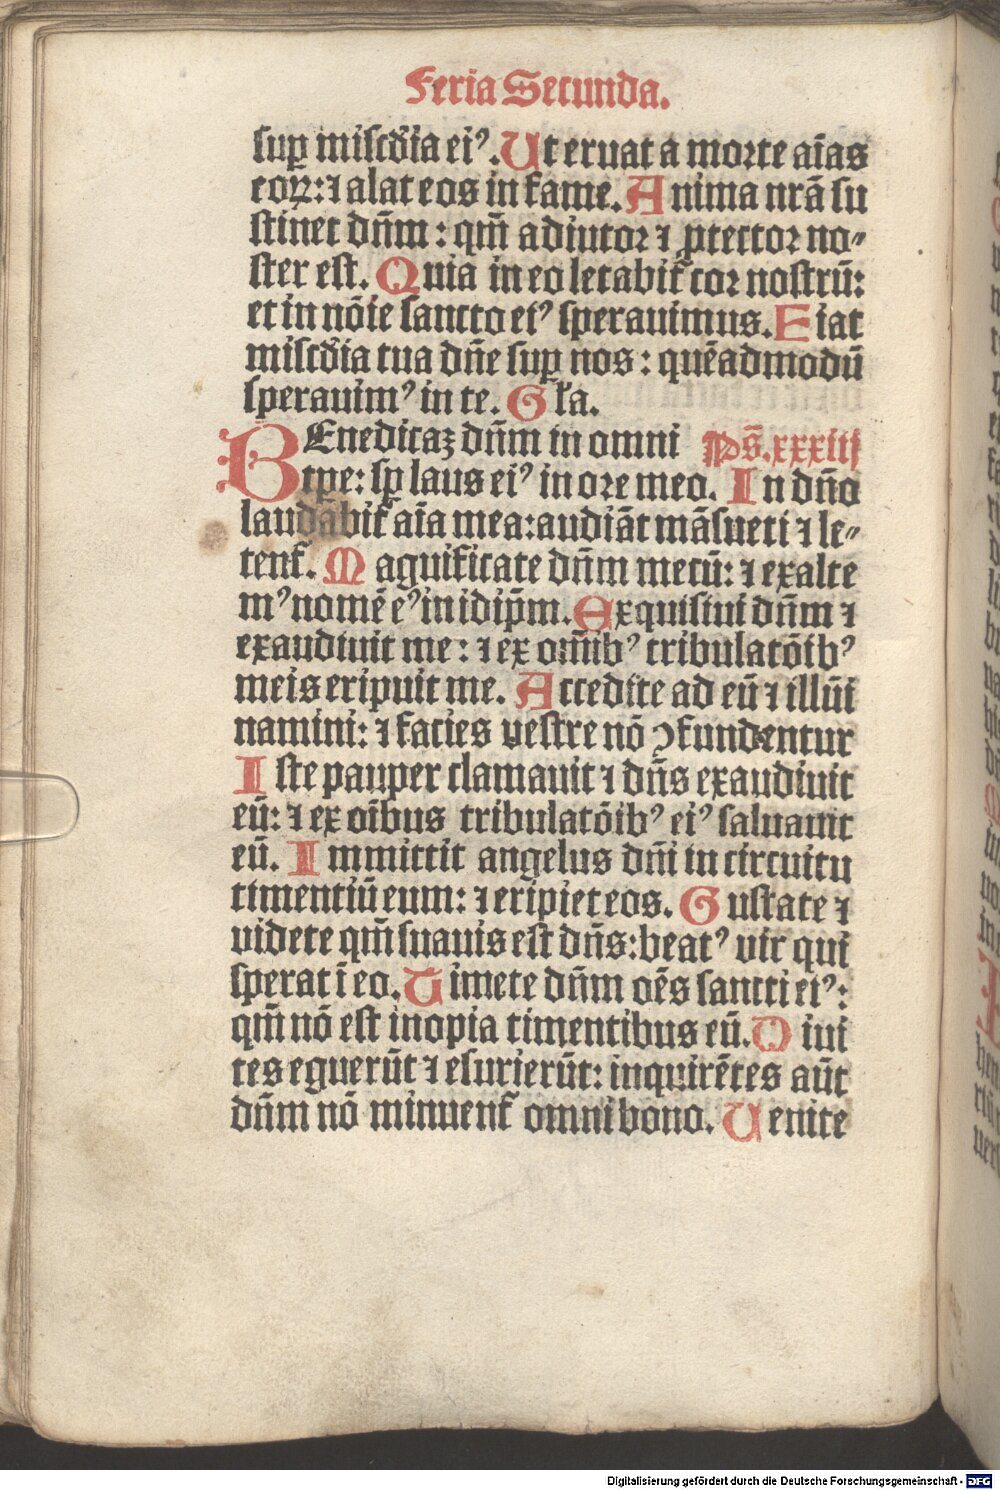 Feria Secunda.
suꝑ miſcd̄ia eiꝰ. Ut eruat a morte aīas
eoꝝ: ⁊ alat eos in fame. Anima nrā ſu
ſtinet dn̄m: qm̄ adiutor ⁊ ꝓtector no⸗
ſter eſt. Quia in eo letabit᷑ cor noſtrū:
et in nōie ſancto eiꝰ ſperauimus. Fiat
miſcd̄ia tua dn̄e ſuꝑ nos: quēadmodū
ſperauimꝰ in te. Gl'a.
BEnedicaꝫ dn̄m in omni Ps̄. xxxiij
tꝑe: ſꝑ laus eiꝰ in ore meo. In dn̄o
laudabit᷑ aīa mea: audiāt māſueti ⁊ le⸗
tent᷑. Magnificate dn̄m mecū: ⁊ exalte
mꝰ nomē eꝰ in idip̄m. Exquiſiui dn̄m ⁊
exaudiuit me: ⁊ ex om̄ibꝰ tribulatōibꝰ
meis eripuit me. Accedite ad eū ⁊ illūi
namini: ⁊ facies veſtre nō ꝯfundentur
Iſte pauper clamauit ⁊ dn̄s exaudiuit
eū: ⁊ ex oībus tribulatōibꝰ eiꝰ ſaluauit
eū. Immittit angelus dn̄i in circuitu
timentiū eum: ⁊ eripiet eos. Guſtate ⁊
videte qm̄ ſuauis eſt dn̄s: beatꝰ vir qui
ſperat ī eo. Timete dn̄m oēs ſancti eiꝰ:
qm̄ nō eſt inopia timentibus eū. Diui
tes eguerūt ⁊ eſurierūt: inquirētes aūt
dn̄m nō minuent᷑ omni bono. Uenite
Digitalisierung gefördert durch die Deutsche Forschungsgemeinschaft - DFG